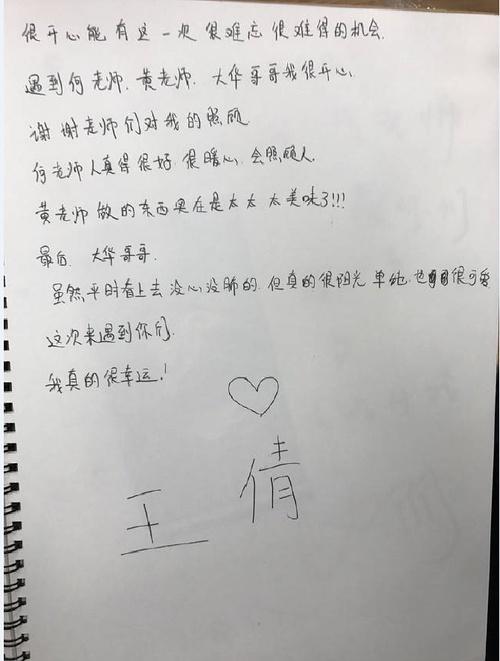 很开心能有这一次很难忘很难得的机会.
遇到何老师.黄老师.大华哥哥我很开心.
谢谢老师们对我的照顾
何老师人真得很好.很暖心.会照顾人.
黄老师做的东西实在是太太太美味了!!!
最后.大华哥哥.
虽然平时看上去没心没肺的.但真的很阳光单纯.也很可爱
这次来遇到你们.
我真的很幸运!
王倩